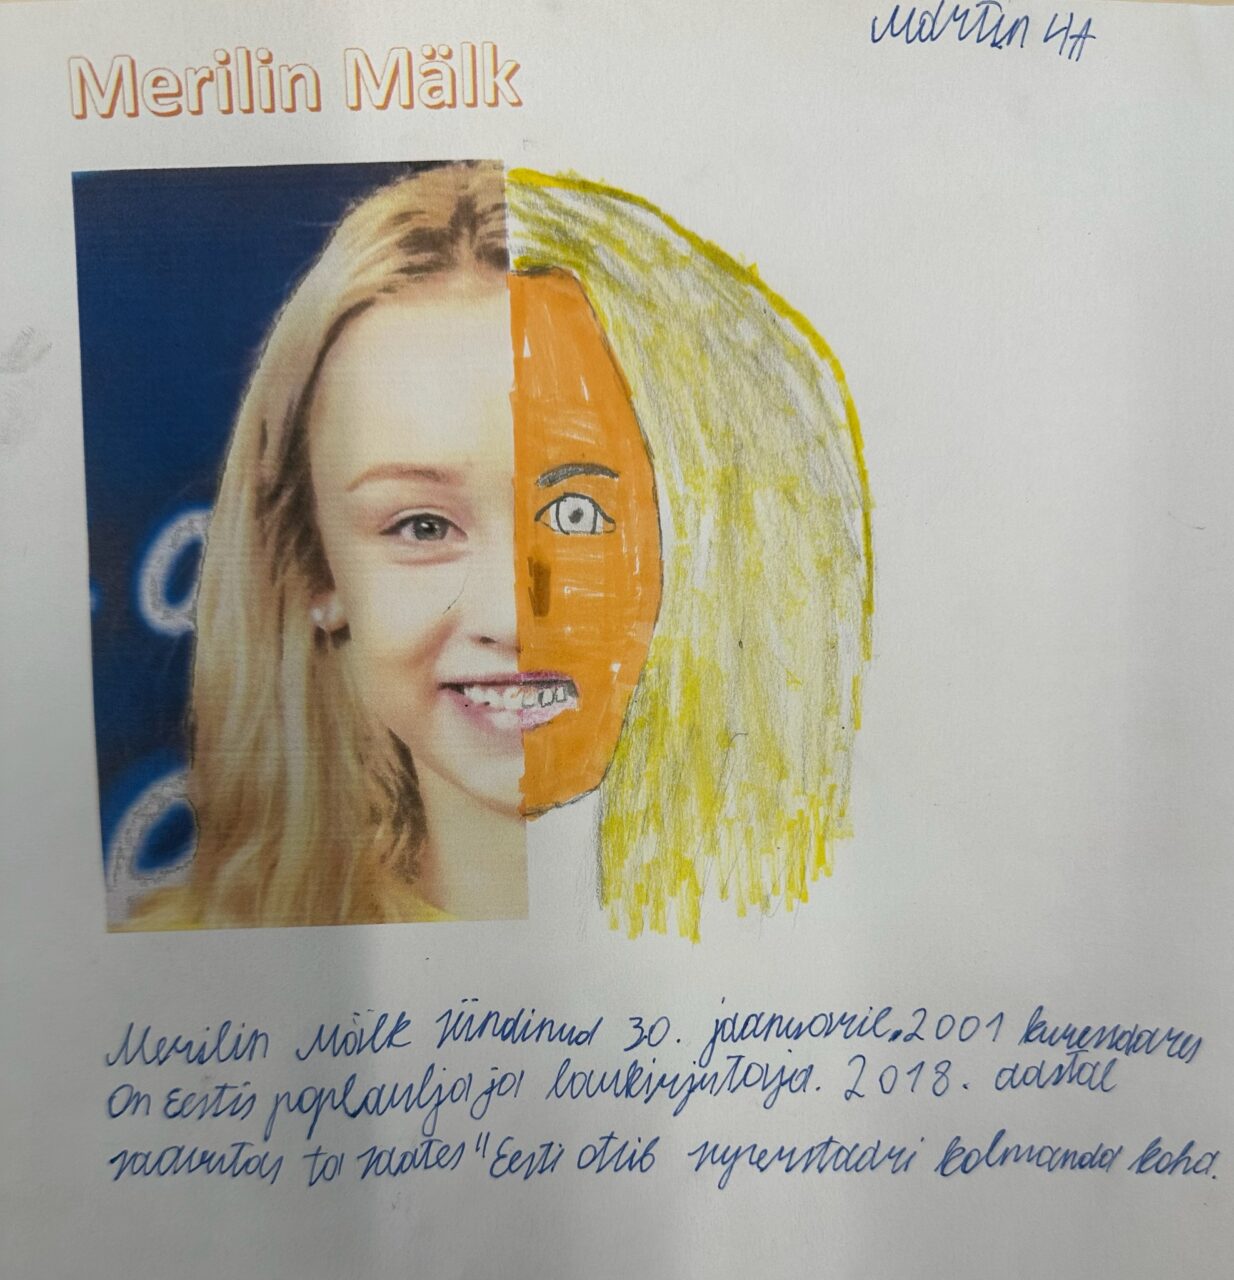 Martin 4A
Merilin Mälk
Merilin Mälk sündinud 30. jaanuaril.2001 kuressaares
On Eestis poplaulja ja laukirjutaja. 2018. aastal
saavutas ta saates "Eesti otsib superstaari kolmanda koha.